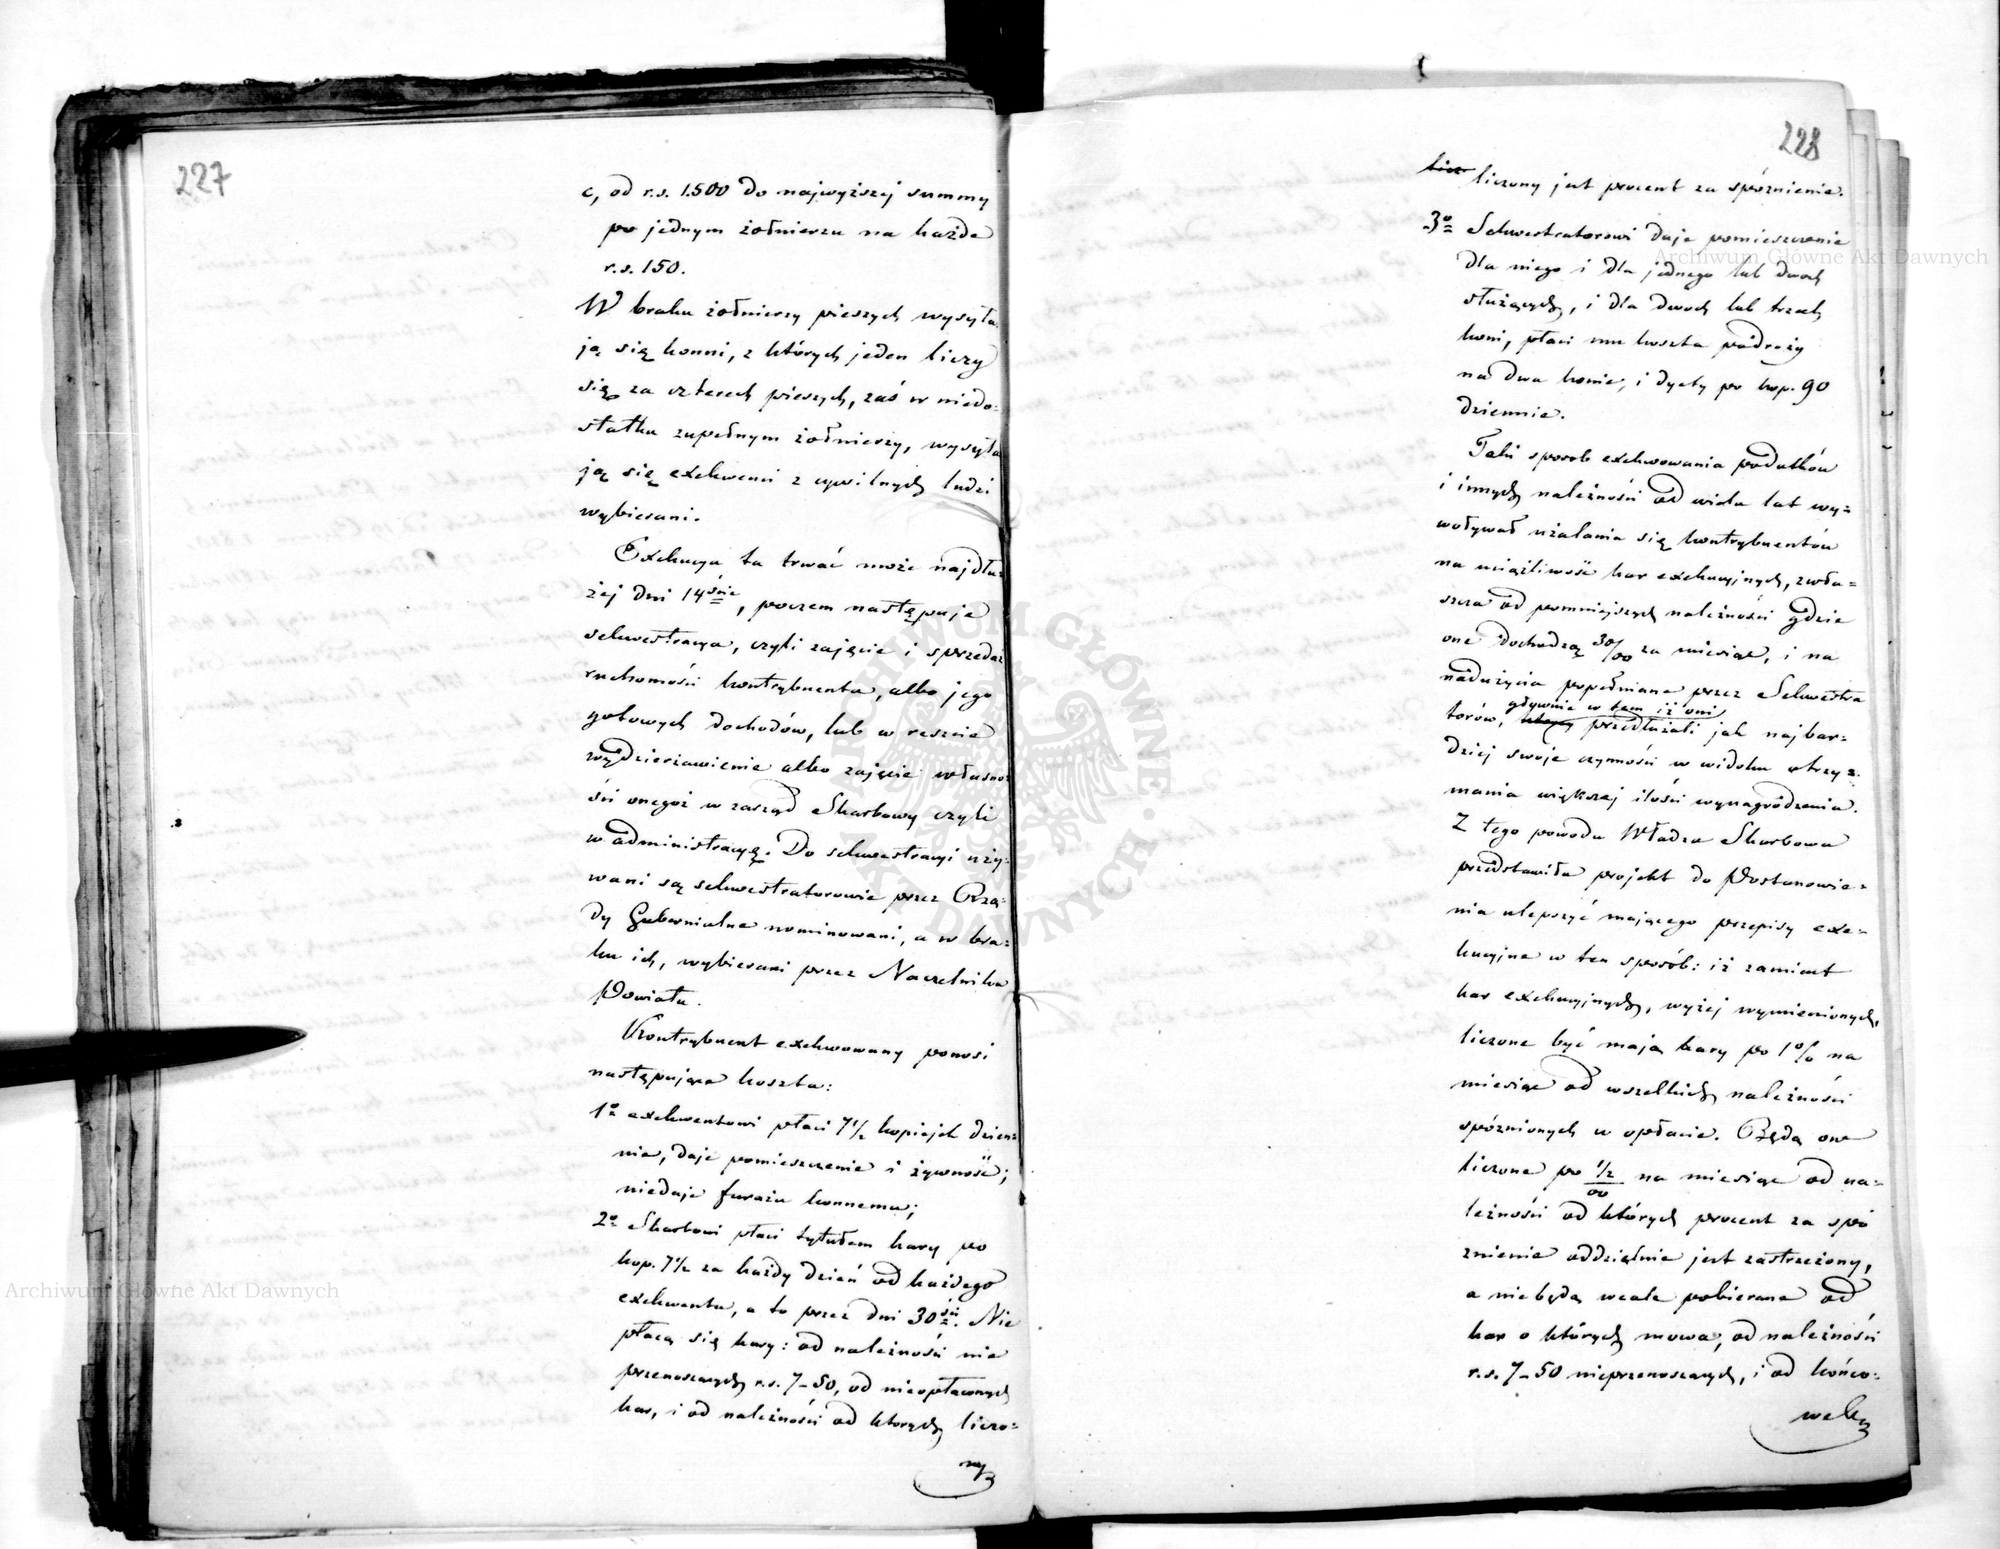 227
c, od r.s. 1.500 do najwyższej summy
po jednym żołnierzu na każde
r.s. 150.
W braku żołnierzy pieszych wysyła-
ją się konni, z których jeden liczy
się za czterech pieszych, zaś w niedo-
statku zupełnym żołnierzy, wysyła
ją się exekwenci z cywilnych ludzi
wybierani.
Exekucya ta trwać może najdłu-
żej dni 14ście, poczem następuje
sekwestracya, czyli zajęcie i sprzedaż
ruchomości kontrybuenta, albo jego
gotowych dochodów, lub w reszcie
wydzierżawienie albo zajęcie własno-
ści onegoż w zarząd Skarbowy czyli
w administracyę. Do sekwestracyi uży-
wani są sekwestratorowie przez Rzą-
dy Gubernialne nominowani, a w bra-
ku ich, wybierani przez Naczelnika
Powiatu.
Kontrybuent exekwowany ponosi
następujące koszta:
1o exekwentowi płaci 7 1/2 kopiejek dzien-
nie, daje pomieszczenie i żywność;
niedaje furażu konnemu;
2o Skarbowi płaci tytułem kary po
kop. 7 1/2 za każdy dzień od każdego
exekwenta, a to przez dni 30ści. Nie
płacą się kary: od należności nie
przenoszących r.s. 7-50, od nieopłaconych
kar, i od należności od których liczo-
ny
228
licz liczony jest procent za spóźnienie.
3o Sekwestratorowi daje pomieszczenie
dla niego i dla jednego lub dwóch
służących, i dla dwóch lub trzech
koni, płaci mu koszta podróży
na dwa konie, i dyety po kop. 90
dziennie.
Taki sposób exekwowania podatków
i innych należności od wielu lat wy-
woływał użalania się kontrybuentów
na uciążliwość kar exekucyjnych, zwła-
szcza od pomniejszych należności gdzie
one dochodzą 30/00 za miesiąc, i na
nadużycia popełniane przez Sekwestra
głównie w tem iż oni
torów, przedłużali jak najbar-
dziej swoje czynności w widoku otrzy-
mania większej ilości wynagrodzenia.
Z tego powodu Władza Skarbowa
przedstawiła projekt do Postanowie-
nia ulepszyć mającego przepisy exe-
kucyjne w ten sposób: iż zamiast
kar exekucyjnych, wyżej wymienionych,
liczone być mają kary po 1 0/0 na
miesiąc od wszelkich należności
spóźnionych w opłacie. Będą one
liczone po 1/2/00 na miesiąc od na-
leżności od których procent za spó
źnienie oddzielnie jest zastrzeżony,
a niebędą wcale pobierane od
kar o których mowa, od należności
r.s. 7-50 nieprzenoszących, i od końco-
wek
Archiwum Główne Akt Dawnych
Archiwum Główne Akt Dawnych
ARCHIWUM GŁÓWNE AKT DAWNYCH